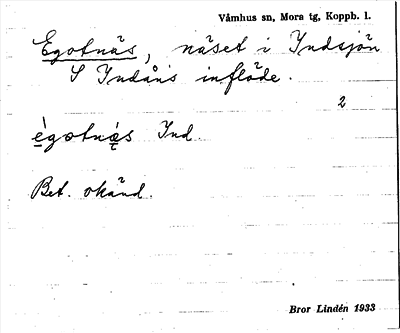 Våmhus sn, Mora tg, Koppb. l.
Egotnäs, näset i Indsjön
S Indåns inflöde.
2
ègotnę́s Ind.
Bet. okänd.
Bror Lindén 1933